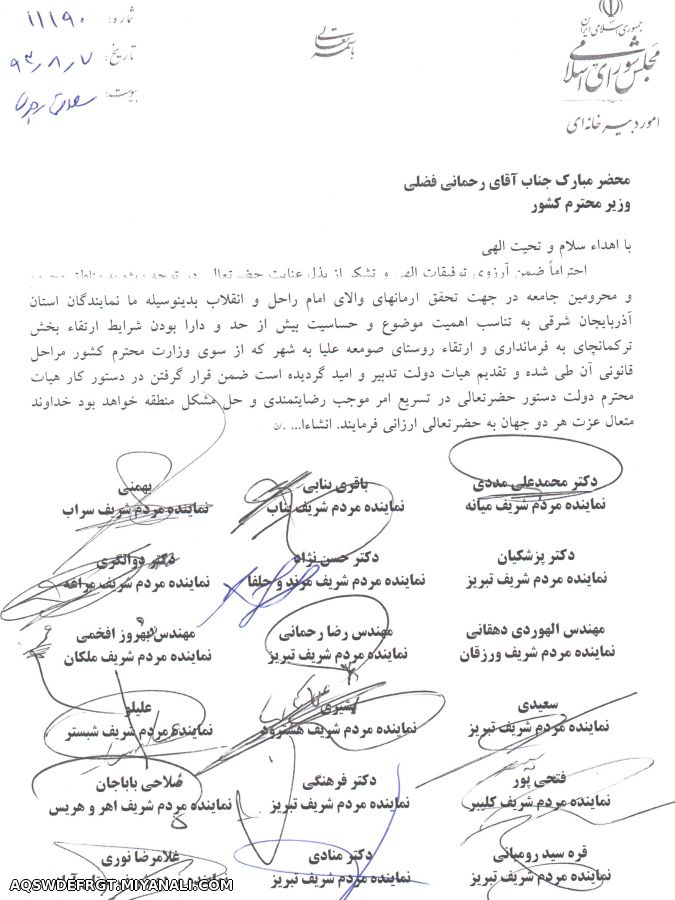 جمهوری اسلامی ایران
مجلس شورای اسلامی
امور دبیرخانه‌ای
باسمه تعالی
شماره: ۱۱۱۹۰
تاریخ: ۹۳/۸/۷
پیوست:
محضر مبارک جناب آقای رحمانی فضلی
وزیر محترم کشور
با اهداء سلام و تحیت الهی
احتراماً ضمن آرزوی توفیقات الهی و تشکر از بذل عنایت حضرتعالی در توجه ویژه به مناطق محروم
و محرومین جامعه در جهت تحقق آرمانهای والای امام راحل و انقلاب بدینوسیله ما نمایندگان استان
آذربایجان شرقی به تناسب اهمیت موضوع و حساسیت بیش از حد و دارا بودن شرایط ارتقاء بخش
ترکمانچای به فرمانداری و ارتقاء روستای صومعه علیا به شهر که از سوی وزارت محترم کشور مراحل
قانونی آن طی شده و تقدیم هیات دولت تدبیر و امید گردیده است ضمن قرار گرفتن در دستور کار هیات
محترم دولت دستور حضرتعالی در تسریع امر موجب رضایتمندی و حل مشکل منطقه خواهد بود خداوند
متعال عزت هر دو جهان به حضرتعالی ارزانی فرمایند. انشاءا...
دکتر محمدعلی مددی باقری بنابی بهمنی
نماینده مردم شریف میانه نماینده مردم شریف بناب نماینده مردم شریف سراب
دکتر پزشکیان دکتر حسن نژاد دکتر دواتگری
نماینده مردم شریف تبریز نماینده مردم شریف مرند و جلفا نماینده مردم شریف مراغه
مهندس الهوردی دهقانی مهندس رضا رحمانی مهندس بهروز افخمی
نماینده مردم شریف ورزقان نماینده مردم شریف تبریز نماینده مردم شریف ملکان
سعیدی بشیری علیلو
نماینده مردم شریف تبریز نماینده مردم شریف هشترود نماینده مردم شریف شبستر
فتحی پور دکتر فرهنگی صلاحی باباجان
نماینده مردم شریف کلیبر نماینده مردم شریف تبریز نماینده مردم شریف اهر و هریس
قره سید رومیانی دکتر منادی غلامرضا نوری
نماینده مردم شریف تبریز نماینده مردم شریف تبریز
AQSWDEFRGT.MIYANALI.COM